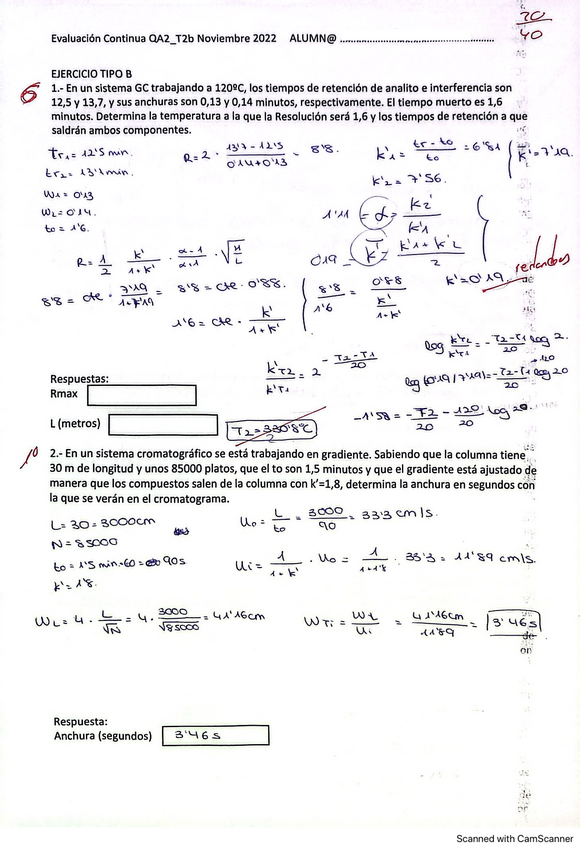 20
40
Evaluación Continua QA2_T2b Noviembre 2022 ALUMN@ ........................................................
6
EJERCICIO TIPO B
1.- En un sistema GC trabajando a 120ºC, los tiempos de retención de analito e interferencia son
12,5 y 13,7, y sus anchuras son 0,13 y 0,14 minutos, respectivamente. El tiempo muerto es 1,6
minutos. Determina la temperatura a la que la Resolución será 1,6 y los tiempos de retención a que
saldrán ambos componentes.
tr1 = 12'5 min.
tr2 = 13'7 min.
W1 = 0'13
W2 = 0'14.
to = 1'6.
R = 2 · (13'7 - 12'5)/(0'14 + 0'13) = 8'8.
k'1 = (tr - to)/to = 6'81
k'2 = 7'56.
k̄' = 7'19.
1'11 = α = k2'/k'1
0,19 = k̄' = (k'1 + k'2)/2
k' = 0'19.
redondeos
R = 1/2 · k'/(1+k') · (α-1)/(α+1) · √(H/L)
8'8 = cte · 7'19/(1+k'19) = 8'8 = cte · 0'88.
1'6 = cte · k'/(1+k')
8'8/1'6 = 0'88/(k'/(1+k'))
k'T2/k'T1 = 2^(-(T2-T1)/20)
log k'T2/k'T1 = -(T2-T1)/20 log 2.
log (0'19/7'19) = -(T2-T1)/20 log 20
120
-1'58 = -T2/20 - 120/20 log 20.
Respuestas:
Rmax
L (metros)
T2 = 330'8ºC
10
2.- En un sistema cromatográfico se está trabajando en gradiente. Sabiendo que la columna tiene
30 m de longitud y unos 85000 platos, que el to son 1,5 minutos y que el gradiente está ajustado de
manera que los compuestos salen de la columna con k'=1,8, determina la anchura en segundos con
la que se verán en el cromatograma.
L = 30 = 3000cm
N = 85000
to = 1'5 min·60 = 90s
k' = 1'8.
Uo = L/to = 3000/90 = 33'3 cm/s.
Ui = 1/(1+k') · Uo = 1/(1+1'8) · 33'3 = 11'89 cm/s.
WL = 4 · L/√N = 4 · 3000/√85000 = 41'16cm
WTi = WL/Ui = 41'16cm/11'89 = 3'46s
de
on
Respuesta:
Anchura (segundos) 3'46 s
Scanned with CamScanner